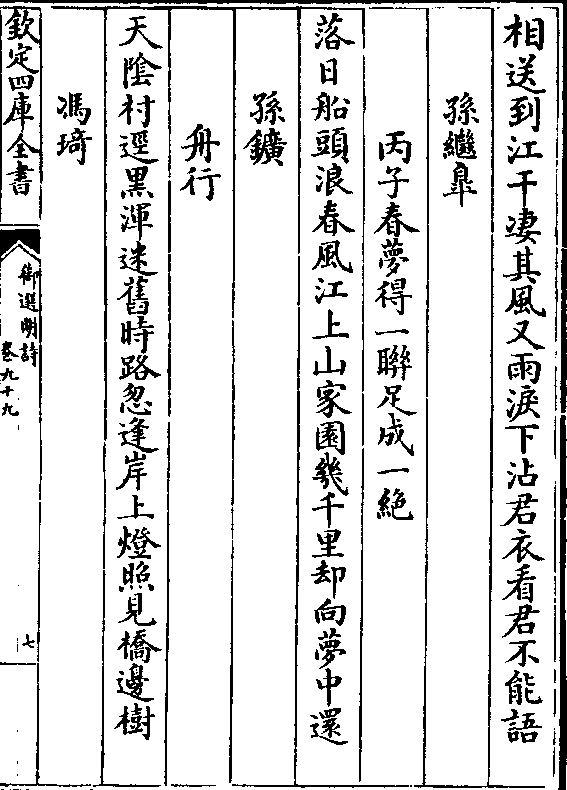 相送到江干凄其風又雨淚下沾君衣看君不能語
孫繼臯
丙子春夢得一聯足成一絶
落日船頭浪春風江上山家園幾千里却向夢中還
孫鑛
舟行
天陰村逕黒渾迷舊時路忽逢岸上燈照見橋邊樹
馮琦
欽定四庫全書
御選明詩
卷九十九
七